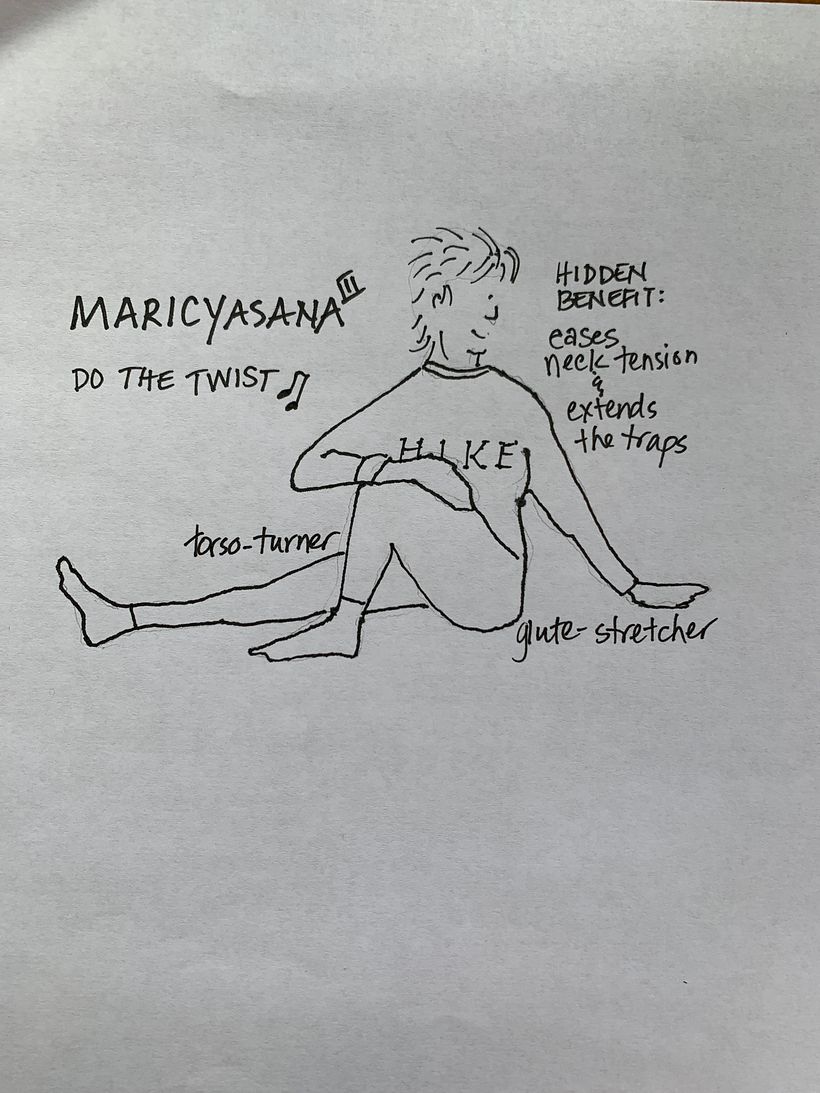 MARICYASANA III
DO THE TWIST
HIDDEN
BENEFIT:
eases
neck tension
&
extends
the traps
HIKE
torso-turner
glute-stretcher